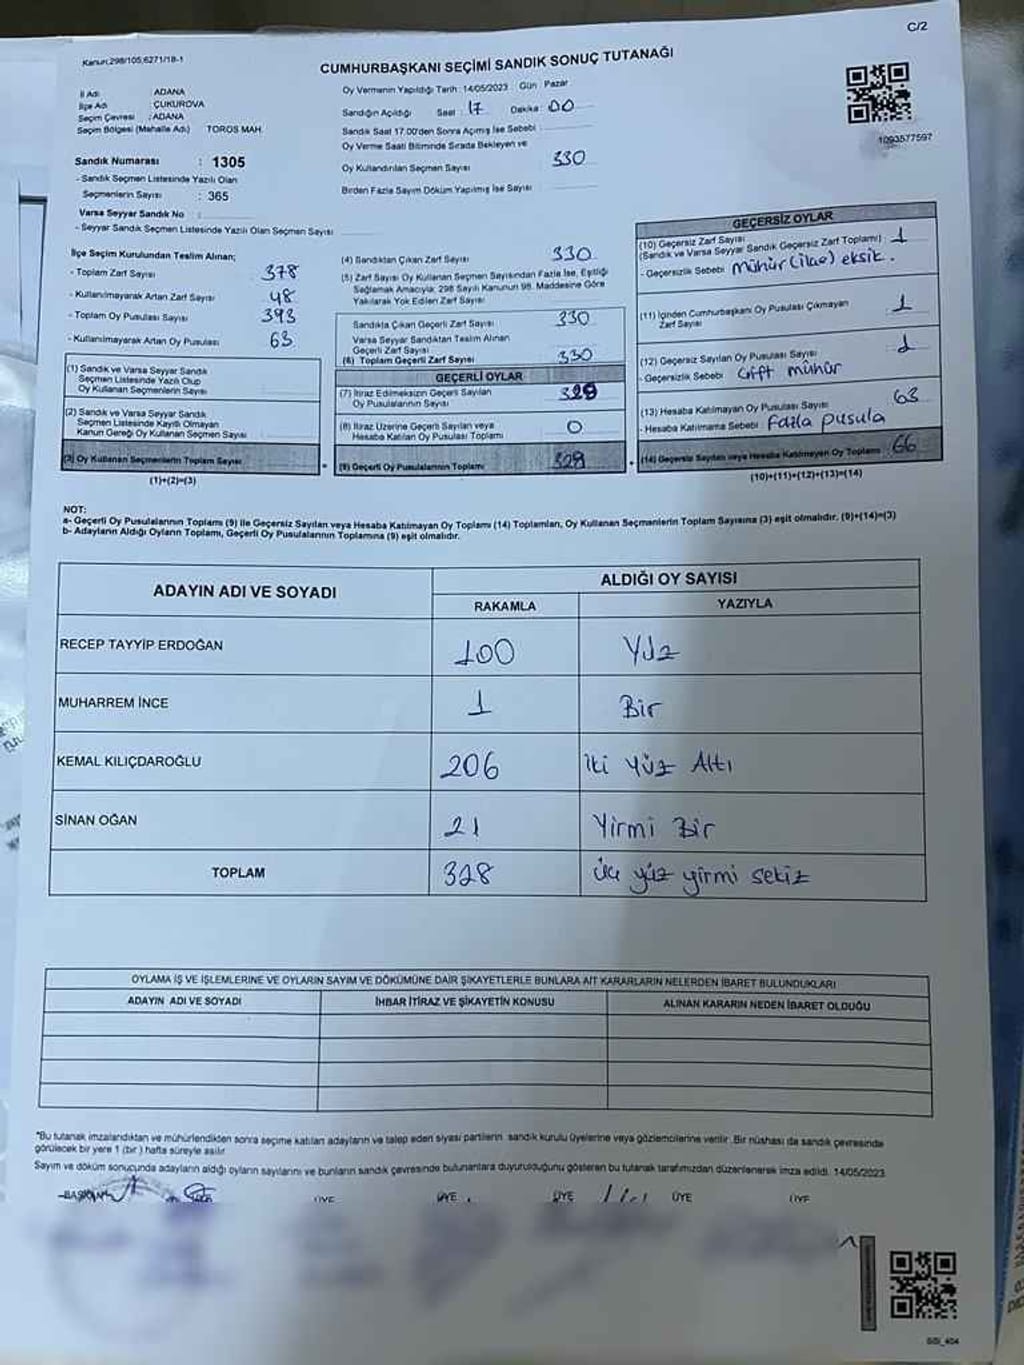 C/2
Kanun:298/105,6271/18-1
CUMHURBAŞKANI SEÇİMİ SANDIK SONUÇ TUTANAĞI
İl Adı : ADANA
İlçe Adı : ÇUKUROVA
Seçim Çevresi : ADANA
Seçim Bölgesi (Mahalle Adı) TOROS MAH.
Sandık Numarası : 1305
- Sandık Seçmen Listesinde Yazılı Olan
Seçmenlerin Sayısı : 365
Varsa Seyyar Sandık No :
- Seyyar Sandık Seçmen Listesinde Yazılı Olan Seçmen Sayısı
Oy Vermenin Yapıldığı Tarih : 14/05/2023 Gün Pazar
Sandığın Açıldığı Saat : 17 Dakika : 00
Sandık Saat 17.00'den Sonra Açımış İse Sebebi
Oy Verme Saati Bitiminde Sırada Bekleyen ve
Oy Kullandırılan Seçmen Sayısı 330
Birden Fazla Sayım Döküm Yapılmış İse Sayısı
1093577597
İlçe Seçim Kurulundan Teslim Alınan;
- Toplam Zarf Sayısı 378
- Kullanılmayarak Artan Zarf Sayısı 48
- Toplam Oy Pusulası Sayısı 393
- Kullanılmayarak Artan Oy Pusulası 63
(1) Sandık ve Varsa Seyyar Sandık
Seçmen Listesinde Yazılı Olup
Oy Kullanan Seçmenlerin Sayısı
(2) Sandık ve Varsa Seyyar Sandık
Seçmen Listesinde Kayıtlı Olmayan
Kanun Gereği Oy Kullanan Seçmen Sayısı
(3) Oy Kullanan Seçmenlerin Toplam Sayısı
(1)+(2)=(3)
(4) Sandıktan Çıkan Zarf Sayısı 330
(5) Zarf Sayısı Oy Kullanan Seçmen Sayısından Fazla İse, Eşitliği
Sağlamak Amacıyla; 298 Sayılı Kanunun 98. Maddesine Göre
Yakılarak Yok Edilen Zarf Sayısı
Sandıkta Çıkan Geçerli Zarf Sayısı 330
Varsa Seyyar Sandıktan Teslim Alınan
Geçerli Zarf Sayısı
(6) Toplam Geçerli Zarf Sayısı 330
GEÇERLİ OYLAR
(7) İtiraz Edilmeksizin Geçerli Sayılan
Oy Pusulalarının Sayısı
(8) İtiraz Üzerine Geçerli Sayılan veya
Hesaba Katılan Oy Pusulası Toplamı 0
(9) Geçerli Oy Pusulalarının Toplamı 328
GEÇERSİZ OYLAR
(10) Geçersiz Zarf Sayısı
(Sandık ve Varsa Seyyar Sandık Geçersiz Zarf Toplamı) 1
- Geçersizlik Sebebi Mühür (ilçe) eksik.
(11) İçinden Cumhurbaşkanı Oy Pusulası Çıkmayan
Zarf Sayısı 1
(12) Geçersiz Sayılan Oy Pusulası Sayısı 1
- Geçersizlik Sebebi Çift mühür
(13) Hesaba Katılmayan Oy Pusulası Sayısı 63
- Hesaba Katılmama Sebebi Fazla pusula
(14) Geçersiz Sayılan veya Hesaba Katılmayan Oy Toplamı 66
(10)+(11)+(12)+(13)=(14)
NOT:
a- Geçerli Oy Pusulalarının Toplamı (9) ile Geçersiz Sayılan veya Hesaba Katılmayan Oy Toplamı (14) Toplamları, Oy Kullanan Seçmenlerin Toplam Sayısına (3) eşit olmalıdır. (9)+(14)=(3)
b- Adayların Aldığı Oyların Toplamı, Geçerli Oy Pusulalarının Toplamına (9) eşit olmalıdır.
ADAYIN ADI VE SOYADI
ALDIĞI OY SAYISI
RAKAMLA YAZIYLA
RECEP TAYYİP ERDOĞAN 100 Yüz
MUHARREM İNCE 1 Bir
KEMAL KILIÇDAROĞLU 206 İki Yüz Altı
SİNAN OĞAN 21 Yirmi Bir
TOPLAM 328 Üç yüz yirmi sekiz
OYLAMA İŞ VE İŞLEMLERİNE VE OYLARIN SAYIM VE DÖKÜMÜNE DAİR ŞİKAYETLERLE BUNLARA AİT KARARLARIN NELERDEN İBARET BULUNDUKLARI
ADAYIN ADI VE SOYADI İHBAR İTİRAZ VE ŞİKAYETİN KONUSU ALINAN KARARIN NEDEN İBARET OLDUĞU
*Bu tutanak imzalandıktan ve mühürlendikten sonra seçime katılan adayların ve talep eden siyasi partilerin sandık kurulu üyelerine veya gözlemcilerine verilir. Bir nüshası da sandık çevresinde
görülecek bir yere 1 (bir) hafta süreyle asılır.
Sayım ve döküm sonucunda adayların aldığı oyların sayılarını ve bunların sandık çevresinde bulunanlara duyurulduğunu gösteren bu tutanak tarafımızdan düzenlenerek imza edildi. 14/05/2023
BAŞKAN ÜYE ÜYE ÜYE ÜYE ÜYE